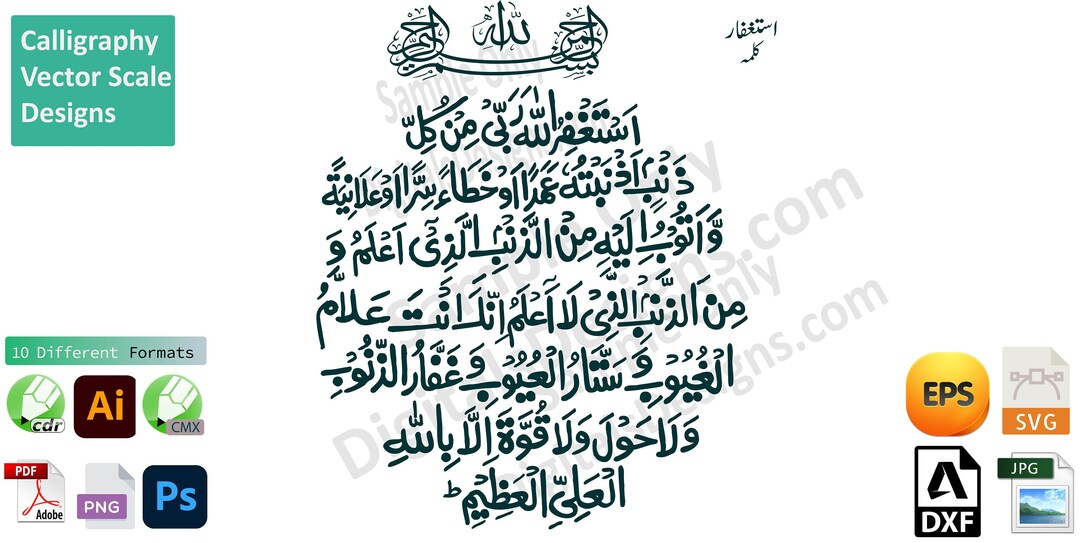 Calligraphy
Vector Scale
Designs
بسم الله الرحمن الرحيم
استغفار
کلمہ
اَسْتَغْفِرُ اللّٰهَ رَبِّیْ مِنْ کُلِّ
ذَنْۢبٍ اَذْنَبْتُهٗ عَمَدًا اَوْ خَطَاءً سِرًّا اَوْ عَلَانِیَةً
وَّاَتُوْبُ اِلَیْهِ مِنَ الذَّنْۢبِ الَّذِیْٓ اَعْلَمُ وَ
مِنَ الذَّنْۢبِ الَّذِیْ لَآ اَعْلَمُ اِنَّكَ اَنْتَ عَلَّامُ
الْغُیُوْبِ وَ سَتَّارُ الْعُیُوْبِ وَ غَفَّارُ الذُّنُوْبِ
وَلَا حَوْلَ وَلَا قُوَّةَ اِلَّا بِاللّٰهِ
الْعَلِیِّ الْعَظِیْمِؕ
Sample Only
Sample Only
Digital Designs.com
10 Different Formats
cdr
Ai
CMX
PDF
Adobe
PNG
Ps
EPS
SVG
DXF
JPG